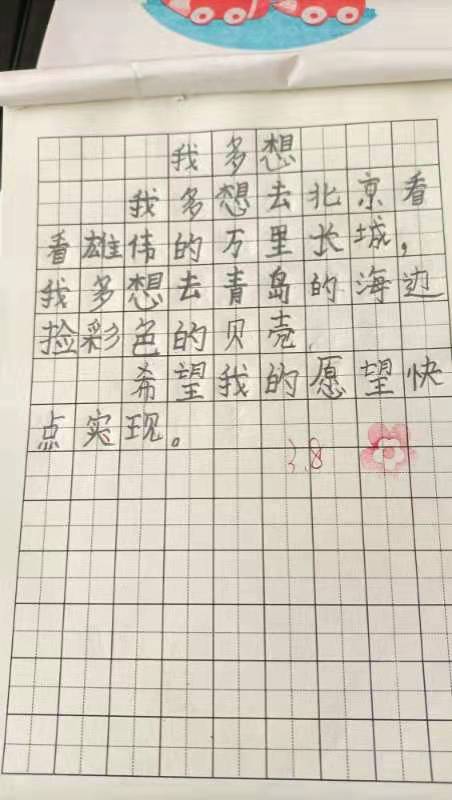 我多想
我多想去北京看
看雄伟的万里长城，
我多想去青岛的海边
捡彩色的贝壳.
希望我的愿望快
点实现。
3.8